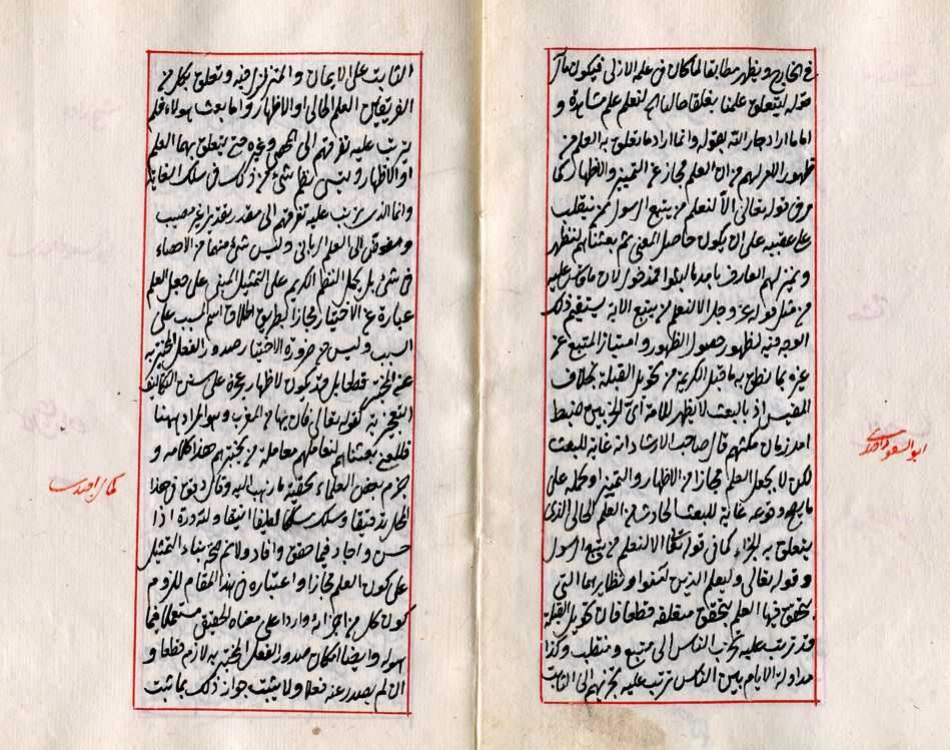 في الخارج ويظهر مطابقا لما كان في علمه الازلي فيكون مآل
قوله ليتعلق علمنا تعلقا حاليا اي لنعلم علم مشاهدة و
اما ما اراد جار الله بقوله وانما اراد ما تعلق به العلم من
ظهور الامر لهم من ان العلم مجاز عن التمييز والاظهار كما
مر في قوله تعالى الا لنعلم من يتبع الرسول ممن ينقلب
على عقبيه على ان يكون حاصل المعنى ثم بعثناهم لنظهر
ونميز لهم العارف بامد ما لبثوا
من مثل قوله عز وجل الا لنعلم من يتبع الاية يستقيم ذلك
الوجه فيه لظهور حصول الظهور وامتياز المتبع عن
غيره بما نطق به ما قبل الكريمة من تحويل القبلة بخلاف
المقيس اذ بالبعث لا يظهر للامة اي الحزبين ضبط
امد زمان مكثهم قال صاحب الارشاد انه غاية للبعث
لكن لا بجعل العلم مجازا من الاظهار والتمييز او بحمله على
ما يصح وقوعه غاية للبعث الحادث من العلم الحالي الذي
يتعلق به الجزاء كما في قوله تعالى الا لنعلم من يتبع الرسول
وقوله تعالى وليعلم الذين آمنوا ونظايرهما التي
يتحقق فيها العلم بتحقق متعلقه قطعا فان تحويل القبلة
قد ترتب عليه تحزب الناس الى متبع ومنقلب وكذا
مداولة الايام بين الناس ترتب عليه تحزبهم الى الثابت
ابو السعود
الثابت على الايمان والمتزلزل فيه وتعلق بكل من
الفريقين العلم الحالي او الاظهار واما بعث هؤلاء فلم
يترتب عليه تفرقهم الى المحصي وغيره حتى يتعلق بهما العلم
او الاظهار وليس شئ من ذلك في سلك الغاية
وانما الذي يترتب عليه تفرقهم الى مقدر تقديرا غير مصيب
ومفوض الى العلم الرباني وليس شئ منهما من الاحصاء
في شئ بل بحمل النظم الكريم على التمثيل المبني على جعل العلم
عبارة عن الاختبار مجازا بطريق اطلاق اسم المسبب على
السبب وليس من ضرورة الاختبار صدور الفعل المختبر به
عن المختبر قطعا بل قد يكون لاظهار عجزه على سنن التكاليف
التعجيزية كقوله تعالى فات بها من المغرب وهو المراد ههنا
فالمعنى بعثناهم لنعاملهم معاملة من يختبرهم هذا كلامه و
جزم بعض العلماء بحقية ما ذهب اليه وقال دقق في هذا
المحل تدقيقا وسلك مسلكا لطيفا انيقا ولله دره اذا
حسن واجاد فيما حقق وافاد ولا تم صحة بناء التمثيل
على كون العلم مجازا واعتباره في هذا المقام للزوم
كون كل من اجزائه واردا على معناه الحقيقي مستعملا فيما
هو له وايضا امكان صدور الفعل المختبر به لازم قطعا و
ان لم يصدر عنه فعلا ولا يثبت جواز ذلك بما ثبت